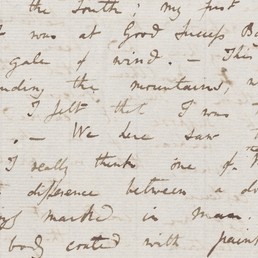 the South; my first
was at Good Success Ba
gale of wind. — This
nding the mountains,
I felt that I was
. — We here saw
I really think one of
difference between a do
marked in man.
body coated with paint